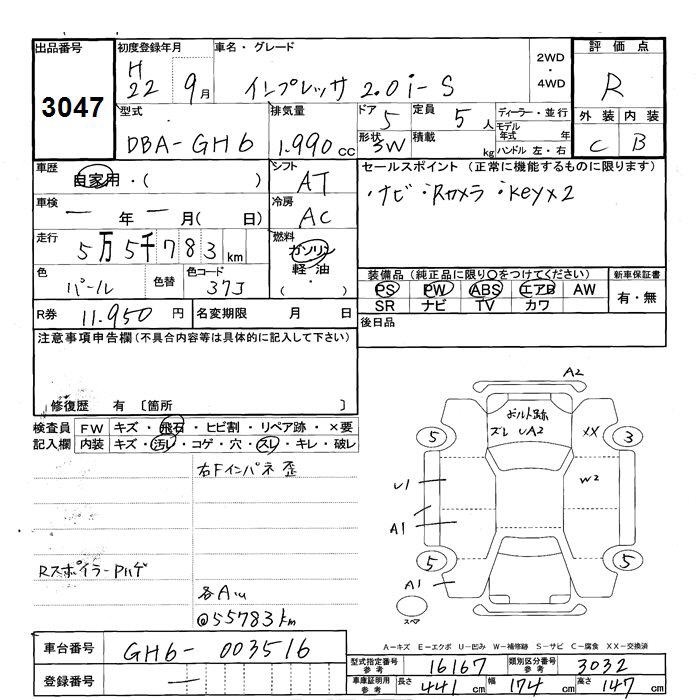 出品番号 初度登録年月 車名・グレード 2WD 評価点
3047 H22 9月 インプレッサ 2.0i-S ・4WD R
型式 排気量 ドア 定員 ディーラー・並行 外装 内装
DBA-GH6 1.990cc 5 5人 モデル年式 年 C B
形状 5W 積載 kg ハンドル 左・右
車歴 自家用・( ) シフト AT セールスポイント (正常に機能するものに限ります)
車検 一年一月( 日) 冷房 AC ・ナビ・Rカメラ・keyx2
走行 5万5千783km 燃料 ガソリン
軽油
・
( )
色 パール 色替 色コード 37J 装備品(純正品に限り○をつけてください) 新車保証書
PS PW ABS エアB AW 有・無
SR ナビ TV カワ
R券 11.950円 名変期限 月 日 後日品
注意事項申告欄(不具合内容等は具体的に記入して下さい)
修復歴 有 〔箇所 〕
検査員 FW キズ・飛石・ヒビ割・リペア跡・×要
記入欄 内装 キズ・汚レ・コゲ・穴・スレ・キレ・破レ
右Fインパネ歪
Rスポイラー Pハゲ
各AU
@55783km
A2
ボルト跡
ズレ UA2
XX
5 3
U1 W2
A1
5 5
A1
スペア
A-キズ E-エクボ U-凹み W-補修跡 S-サビ C-腐食 XX-交換済
車台番号 GH6-003516
登録番号 一
型式指定番号 参考 16167 類別区分番号 参考 3032
車庫証明用 参考 長さ 441cm 幅 174cm 高さ 147cm